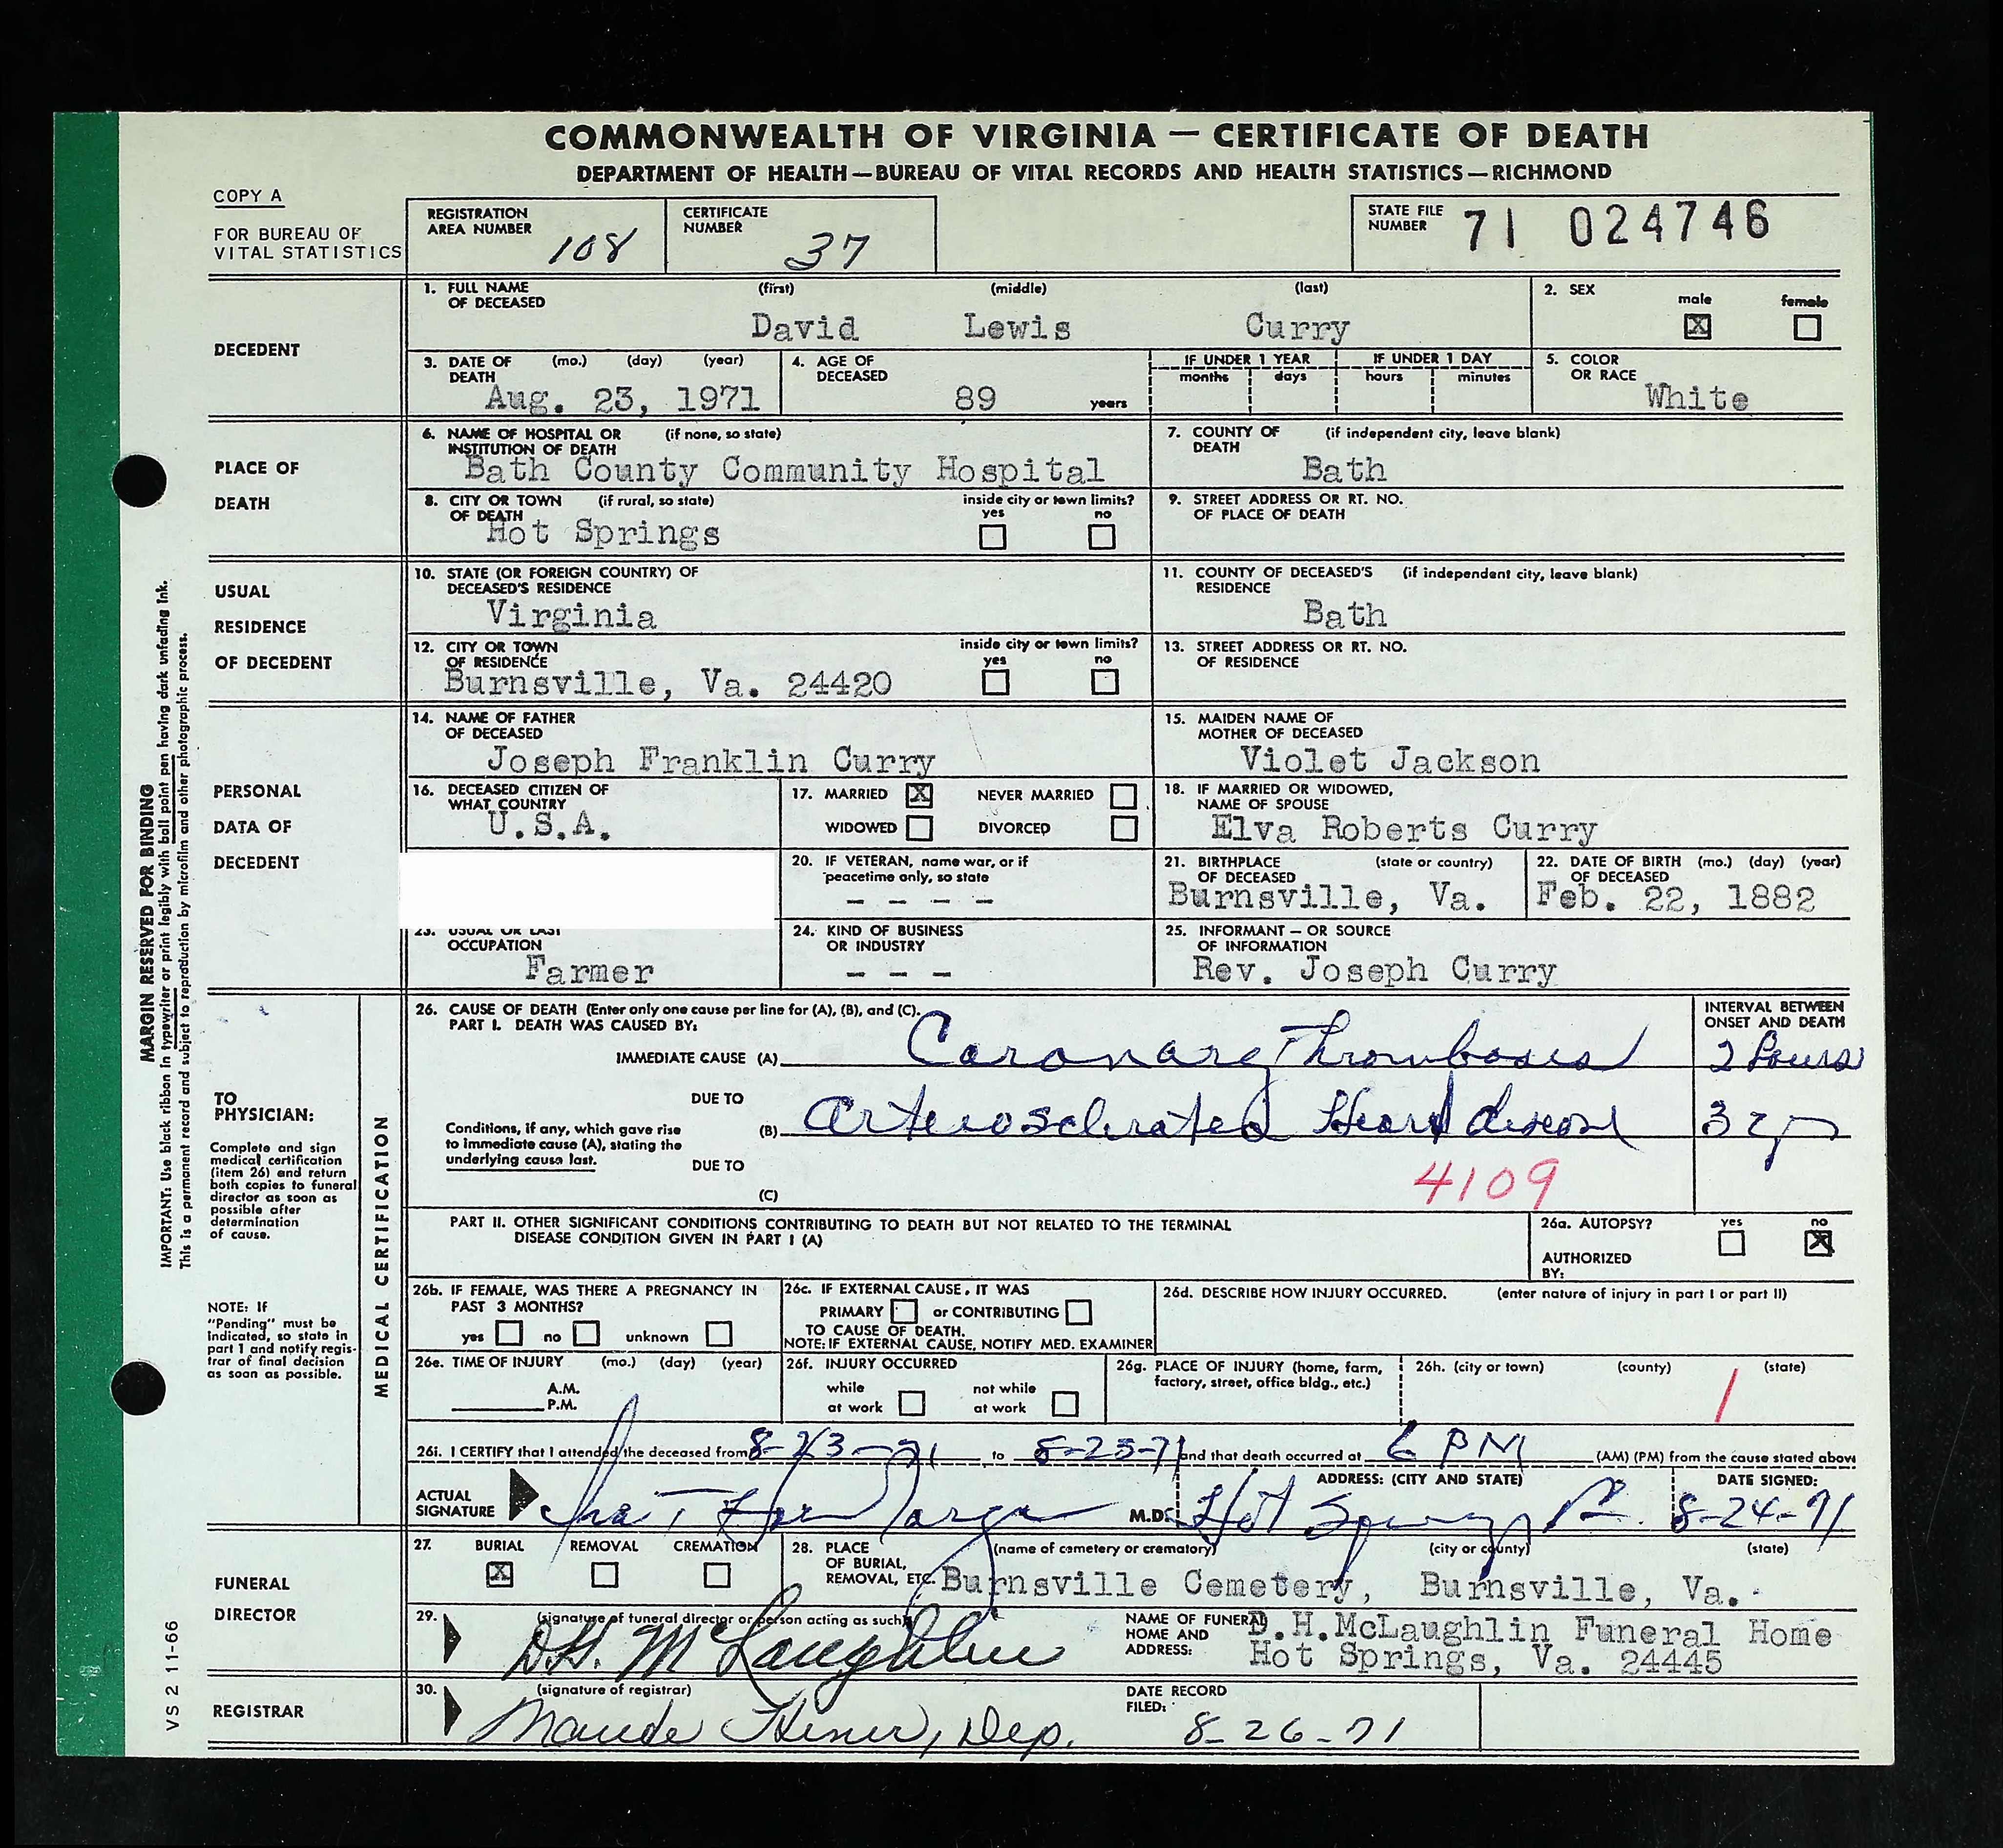 COMMONWEALTH OF VIRGINIA — CERTIFICATE OF DEATH
DEPARTMENT OF HEALTH—BUREAU OF VITAL RECORDS AND HEALTH STATISTICS—RICHMOND
COPY A
FOR BUREAU OF
VITAL STATISTICS
REGISTRATION
AREA NUMBER 108
CERTIFICATE
NUMBER 37
STATE FILE
NUMBER 71 024746
DECEDENT
1. FULL NAME (first) (middle) (last)
OF DECEASED
David Lewis Curry
2. SEX male female
X
3. DATE OF (mo.) (day) (year)
DEATH
Aug. 23, 1971
4. AGE OF
DECEASED
89 years
IF UNDER 1 YEAR IF UNDER 1 DAY
months days hours minutes
5. COLOR
OR RACE
White
PLACE OF
DEATH
6. NAME OF HOSPITAL OR (if none, so state)
INSTITUTION OF DEATH
Bath County Community Hospital
7. COUNTY OF (if independent city, leave blank)
DEATH
Bath
8. CITY OR TOWN (if rural, so state) inside city or town limits?
OF DEATH yes no
Hot Springs
9. STREET ADDRESS OR RT. NO.
OF PLACE OF DEATH
USUAL
RESIDENCE
OF DECEDENT
10. STATE (OR FOREIGN COUNTRY) OF
DECEASED'S RESIDENCE
Virginia
11. COUNTY OF DECEASED'S (if independent city, leave blank)
RESIDENCE
Bath
12. CITY OR TOWN inside city or town limits?
OF RESIDENCE yes no
Burnsville, Va. 24420
13. STREET ADDRESS OR RT. NO.
OF RESIDENCE
PERSONAL
DATA OF
DECEDENT
14. NAME OF FATHER
OF DECEASED
Joseph Franklin Curry
15. MAIDEN NAME OF
MOTHER OF DECEASED
Violet Jackson
16. DECEASED CITIZEN OF
WHAT COUNTRY
U.S.A.
17. MARRIED X NEVER MARRIED
WIDOWED DIVORCED
18. IF MARRIED OR WIDOWED,
NAME OF SPOUSE
Elva Roberts Curry
20. IF VETERAN, name war, or if
peacetime only, so state
- - - -
21. BIRTHPLACE (state or country)
OF DECEASED
Burnsville, Va.
22. DATE OF BIRTH (mo.) (day) (year)
OF DECEASED
Feb. 22, 1882
23. USUAL OR LAST
OCCUPATION
Farmer
24. KIND OF BUSINESS
OR INDUSTRY
- - -
25. INFORMANT — OR SOURCE
OF INFORMATION
Rev. Joseph Curry
MARGIN RESERVED FOR BINDING
IMPORTANT: Use black ribbon in typewriter or print legibly with ball point pen having dark unfading ink.
This is a permanent record and subject to reproduction by microfilm and other photographic process.
VS 2 11-66
TO
PHYSICIAN:
Complete and sign
medical certification
(item 26) and return
both copies to funeral
director as soon as
possible after
determination
of cause.
NOTE: IF
"Pending" must be
indicated, so state in
part 1 and notify regis-
trar of final decision
as soon as possible.
MEDICAL CERTIFICATION
26. CAUSE OF DEATH (Enter only one cause per line for (A), (B), and (C).
PART I. DEATH WAS CAUSED BY:
INTERVAL BETWEEN
ONSET AND DEATH
IMMEDIATE CAUSE (A) Coronary Thrombosis 2 hours
DUE TO
Conditions, if any, which gave rise
to immediate cause (A), stating the
underlying cause last.
(B) Arteriosclerotic Heart disease 3 yrs
DUE TO
(C)
4109
PART II. OTHER SIGNIFICANT CONDITIONS CONTRIBUTING TO DEATH BUT NOT RELATED TO THE TERMINAL
DISEASE CONDITION GIVEN IN PART I (A)
26a. AUTOPSY? yes no
X
AUTHORIZED
BY:
26b. IF FEMALE, WAS THERE A PREGNANCY IN
PAST 3 MONTHS?
yes no unknown
26c. IF EXTERNAL CAUSE, IT WAS
PRIMARY or CONTRIBUTING
TO CAUSE OF DEATH.
NOTE: IF EXTERNAL CAUSE, NOTIFY MED. EXAMINER
26d. DESCRIBE HOW INJURY OCCURRED. (enter nature of injury in part I or part II)
26e. TIME OF INJURY (mo.) (day) (year)
A.M.
P.M.
26f. INJURY OCCURRED
while not while
at work at work
26g. PLACE OF INJURY (home, farm,
factory, street, office bldg., etc.)
26h. (city or town) (county) (state)
1
26i. I CERTIFY that I attended the deceased from 8-23-71 to 8-23-71 and that death occurred at 6 PM (AM) (PM) from the cause stated above
ACTUAL
SIGNATURE M.D.
ADDRESS: (CITY AND STATE)
Hot Springs
DATE SIGNED:
8-24-71
FUNERAL
DIRECTOR
27. BURIAL REMOVAL CREMATION
X
28. PLACE (name of cemetery or crematory) (city or county) (state)
OF BURIAL,
REMOVAL, ETC. Burnsville Cemetery, Burnsville, Va.
29. (signature of funeral director or person acting as such)
D.H. McLaughlin
NAME OF FUNERAL
HOME AND
ADDRESS:
D.H.McLaughlin Funeral Home
Hot Springs, Va. 24445
REGISTRAR
30. (signature of registrar)
Maude Hiner, Dep.
DATE RECORD
FILED:
8-26-71